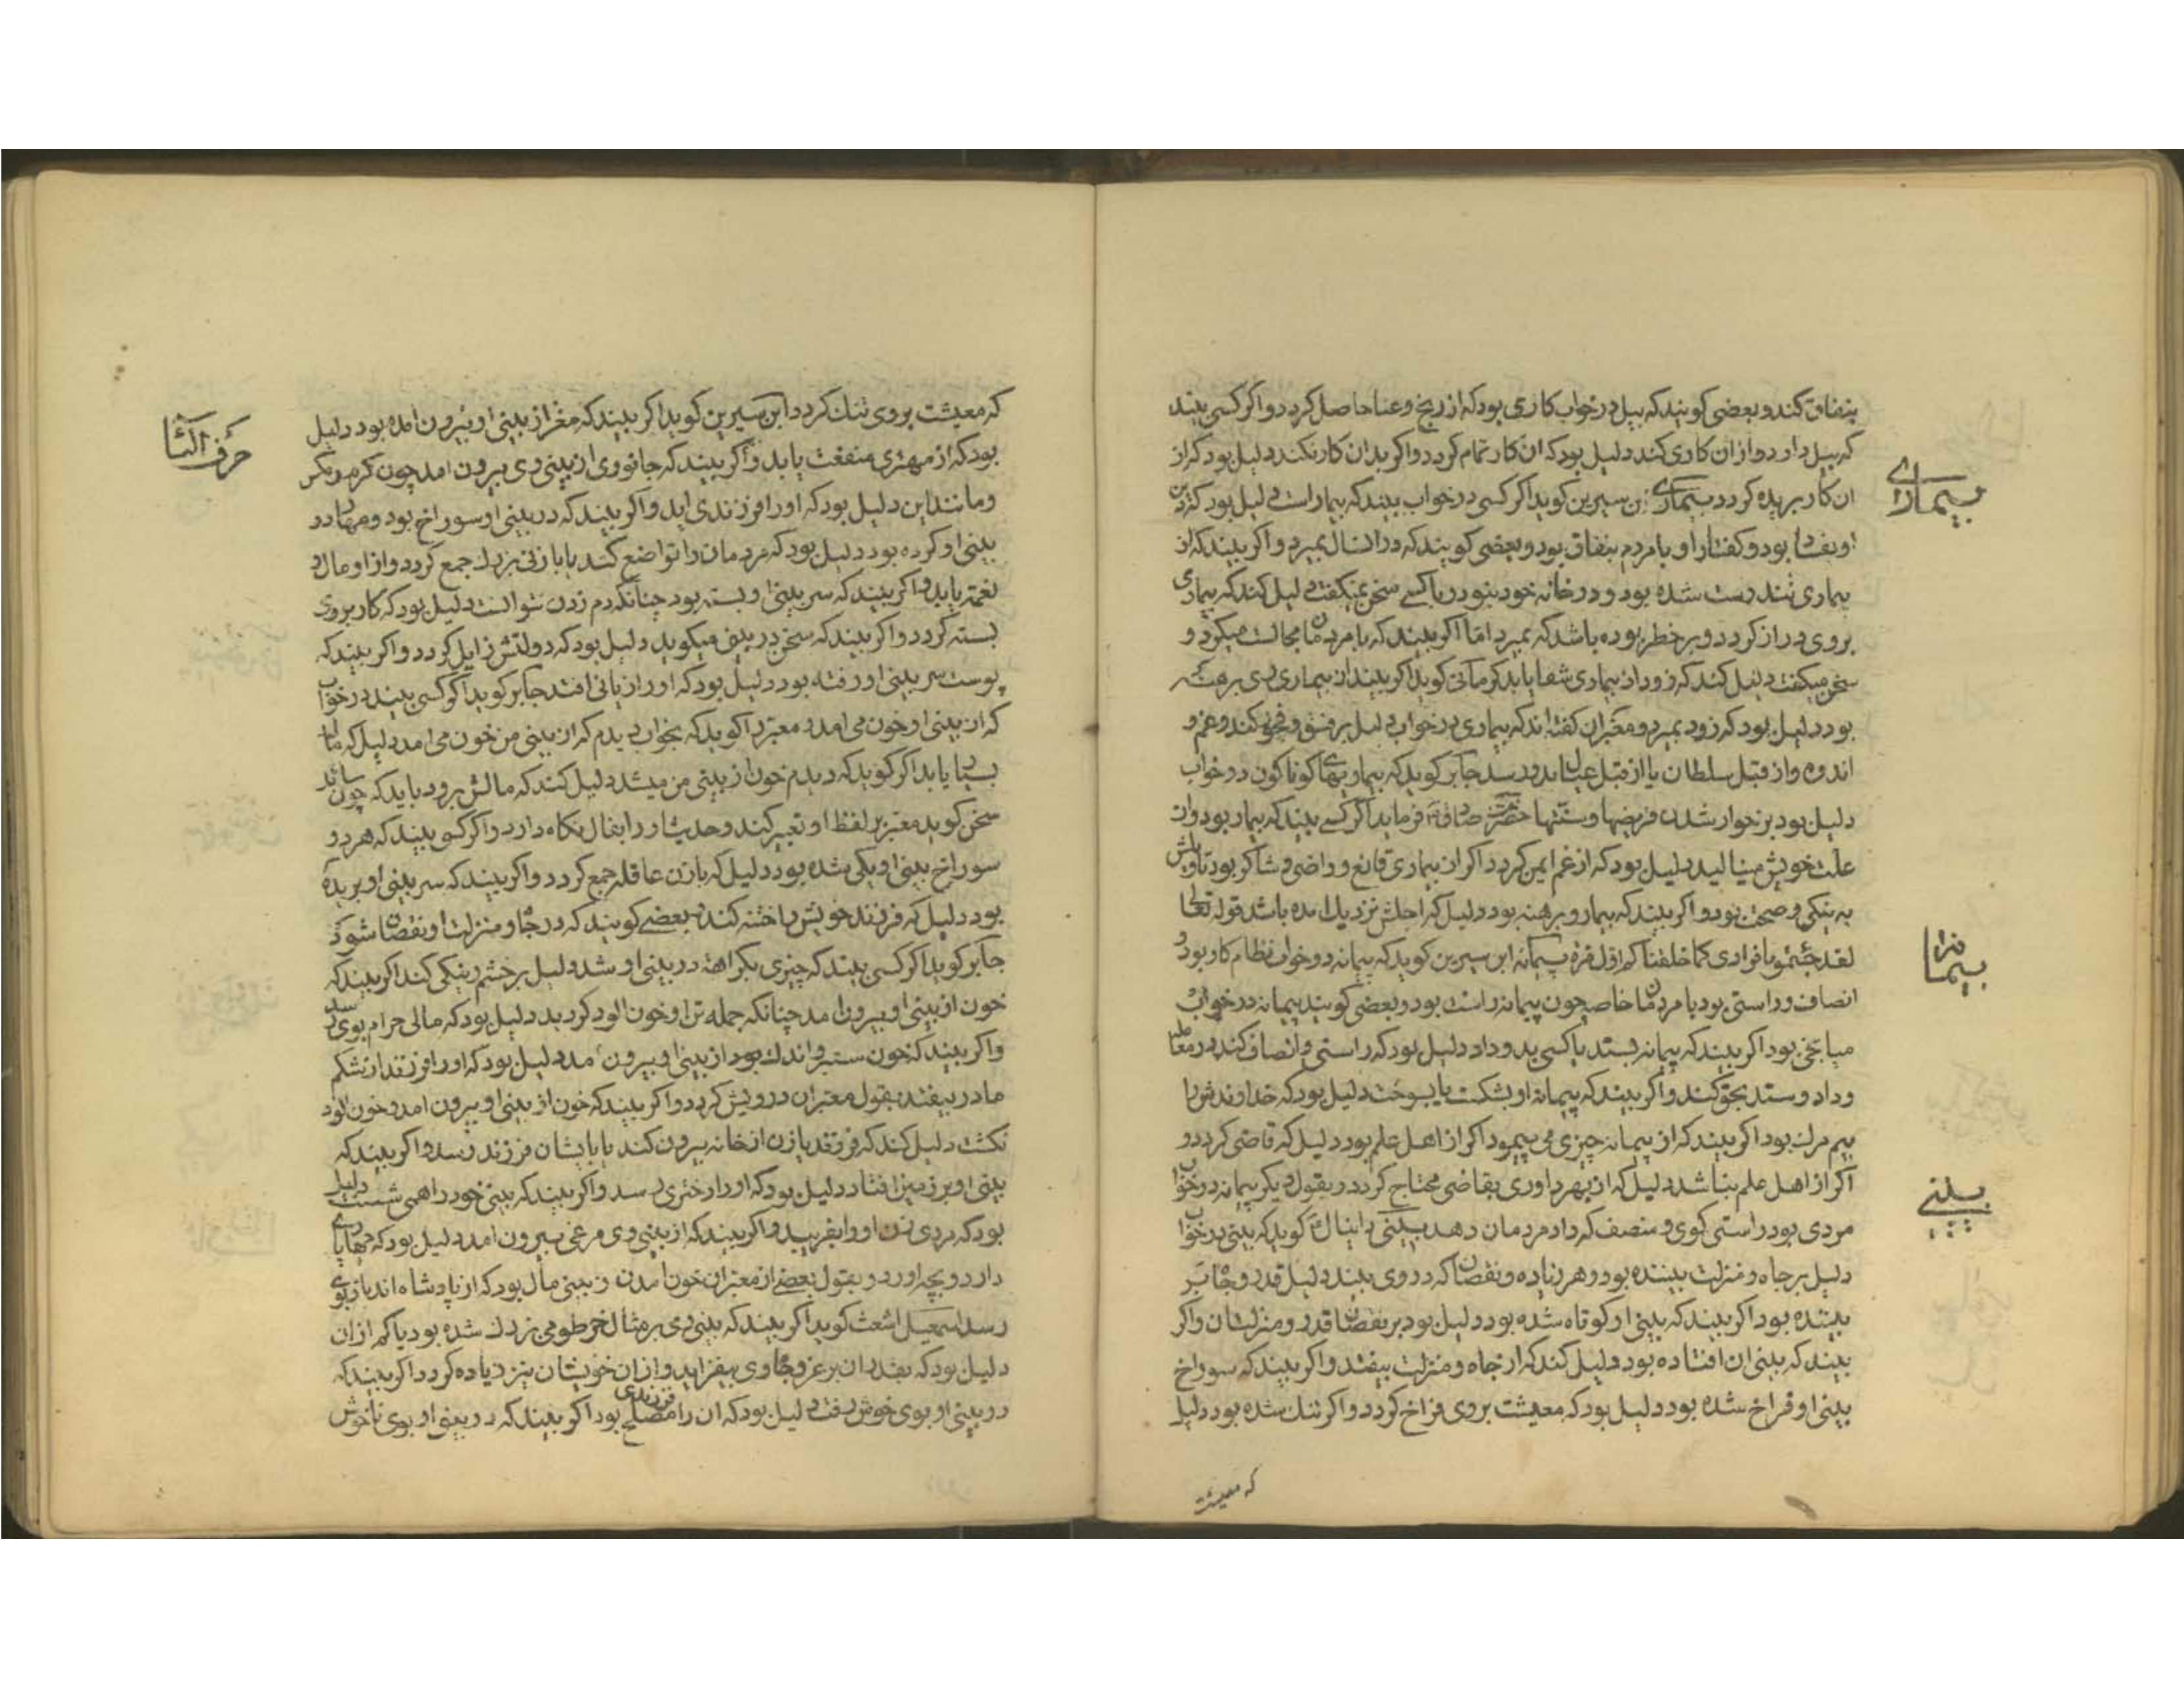 بنفاق کند و بعضی کویند که بیل در خواب کاری بود که از رنج و عنا حاصل کردد و اکر کسی بیند
که بیل دارد و از ان کاری کند دلیل بود که ان کار تمام کردد و اکر بدان کار نکند دلیل بود که از
بیماری
ان کار بریده کردد بیماری ابن سیرین کوید اکر کسی در خواب بیند که بیمار است دلیل بود که دین
او بفساد بود و کفتار او با مردم بنفاق بود و بعضی کویند که در انسال بمیرد و اکر بیند که از
بیماری تندرست شده بود و در خانه خود بنود و با کسی سخن نمیکفت دلیل کند که بیماری
بر وی دراز کردد و بر خطر بوده باشد که بمیرد اما اکر بیند که با مردمان مجالست میکرد و
سخن میکفت دلیل کند که زود از بیماری شفا یابد کرمانی کوید اکر بیند از بیماری وی برهنه
بود دلیل بود که زود بمیرد و معبران کفته اند که بیماری در خواب دلیل بر فسق و فجور کند و غم و
اندوه و از قبل سلطان یا از قبل عیال بدو رسد جابر کوید که بیماریهای کوناکون در خواب
دلیل بود بر خوار شدن فریضها و سنتها حضرت صادق فرماید اکر کسی بیند که بیمار بود و از
علت خویش مینالید دلیل بود که از غم ایمن کردد اکر از بیماری قانع و راضی و شاکر بود تاویلش
به نیکی و صحت بود و اکر بیند که بیمار و برهنه بود دلیل که اجلش نزدیک امده باشد قوله تعالی
پیمانه
لقد جئتمونا فرادی کما خلقناکم اول مره پیمانه ابن سیرین کوید که پیمانه در خواب نظام کار بود و
انصاف و راستی بود با مردمان خاصه چون پیمانه راست بود و بعضی کویند پیمانه در خواب
میانجی بود اکر بیند که پیمانه بستد یا کسی بدو داد دلیل بود که راستی و انصاف کند در معامله
و داد و ستد بحق کند و اکر بیند که پیمانه او بشکست یا بسوخت دلیل بود که خداوندش را
بیم مرک بود اکر بیند که از پیمانه چیزی می پیمود اکر از اهل علم بود دلیل که قاضی کردد و
اکر از اهل علم نباشد دلیل که از بهر داوری بقاضی محتاج کردد و بقول دیکر پیمانه در خواب
بینی
مردی بود راستی کوی و منصف که داد مردمان دهد بینی دانیال کوید که بینی در خواب
دلیل بر جاه و منزلت بیننده بود و هر زیاده و نقصان که در وی بیند دلیل قدر و جاه بر
بیننده بود اکر بیند که بینی او کوتاه شده بود دلیل بود بر نقصان قدر و منزلتش و اکر
بیند که بینی ان افتاده بود دلیل کند که از جاه و منزلت بیفتد و اکر بیند که سوراخ
بینی او فراخ شده بود دلیل بود که معیشت بر وی فراخ کردد و اکر تنک شده بود دلیل
که معیشت
که معیشت بر وی تنک کردد ابن سیرین کوید اکر بیند که مغز از بینی او بیرون امده بود دلیل
حرف التا
بود که از مهتری منفعت یابد و اکر بیند که جانوری از بینی وی بیرون امد چون کرم و مکس
و مانند این دلیل بود که او را فرزندی اید و اکر بیند که در بینی او سوراخ بود و مهار در
بینی او کرده بود دلیل بود که مردمان را تواضع کند یا با زنی بزرک جمع کردد و از او مال و
نعمت یابد و اکر بیند که سر بینی او بسته بود چنانکه دم زدن نتوانست دلیل بود که کار بر وی
بسته کردد و اکر بیند که سخن در بینی میکوید دلیل بود که دولتش زایل کردد و اکر بیند که
پوست سر بینی او رفته بود دلیل بود که او را زیانی افتد جابر کوید اکر کسی بیند در خواب
که از بینی او خون می امد و معبر را کوید که بخواب دیدم که از بینی من خون می امد دلیل که مال
بسیار یابد اکر کوید که دیدم خون از بینی من میشد دلیل کند که مالش برود باید که چون سائل
سخن کوید معبر بر لفظ او تعبیر کند و حدیث او را بفال نکاه دارد و اکر کسی بیند که هر دو
سوراخ بینی او یکی شده بود دلیل که با زن عاقله جمع کردد و اکر بیند که سر بینی او بریده
بود دلیل که فرزند خویش را ختنه کند و بعضی کویند که در جاه و منزلت او نقصان شود
جابر کوید اکر کسی بیند که چیزی بکراهت در بینی او شد دلیل بر خشم و نیکی کند اکر بیند که
خون از بینی او بیرون امد چنانکه جمله تن او خون الود کردید دلیل بود که مالی حرام بوی رسد
و اکر بیند که خون ستبر و اندک بود از بینی او بیرون امد دلیل بود که او را فرزند از شکم
مادر بیفتد بقول معبران درویش کردد و اکر بیند که خون از بینی او بیرون امد و خون الود
نکشت دلیل کند که فرزند یا زن از خانه بیرون کند یا بایشان فرزند رسد و اکر بیند که
بینی او بر زمین افتاد دلیل بود که او را دختری رسد و اکر بیند که بینی خود را همی شست دلیل
بود که مردی زن او را بفریبد و اکر بیند که از بینی وی مرغی بیرون امد دلیل بود که چهارپای
دارد و بچه اورد و بقول بعضی از معبران خون امدن از بینی مال بود که از پادشاه اندازه بوی
رسد اسمعیل اشعث کوید اکر بیند که بینی وی بر مثال خرطومی بزرک شده بود یا کم از ان
دلیل بود که بقدر ان بر عز و جاه وی بیفزاید و از ان خویشان نیز زیاده کردد اکر بیند که
در بینی او بوی خوش رفت دلیل بود که ان را فرزندی مصلح بود اکر بیند که در بینی او بوی ناخوش